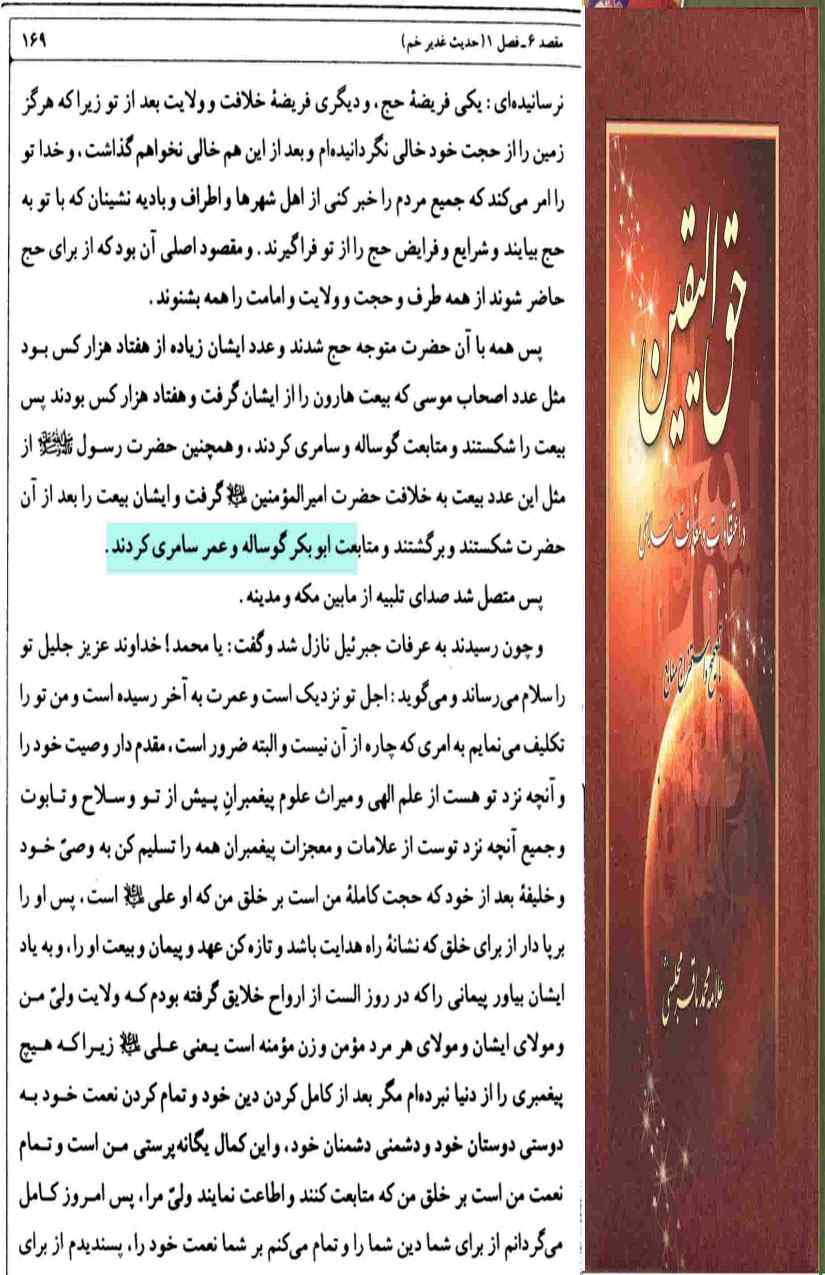 مقصد ۶ـ فصل ۱ (حدیث غدیر خم) ۱۶۹
نرسانیده‌ای: یکی فریضهٔ حج، و دیگری فریضهٔ خلافت و ولایت بعد از تو زیرا که هرگز
زمین را از حجت خود خالی نگردانیده‌ام و بعد از این هم خالی نخواهم گذاشت، و خدا تو
را امر می‌کند که جمیع مردم را خبر کنی از اهل شهرها و اطراف و بادیه نشینان که با تو به
حج بیایند و شرایع و فرایض حج را از تو فراگیرند. و مقصود اصلی آن بود که از برای حج
حاضر شوند از همه طرف و حجت و ولایت و امامت را همه بشنوند.
پس همه با آن حضرت متوجه حج شدند و عدد ایشان زیاده از هفتاد هزار کس بود
مثل عدد اصحاب موسی که بیعت هارون را از ایشان گرفت و هفتاد هزار کس بودند پس
بیعت را شکستند و متابعت گوساله و سامری کردند، و همچنین حضرت رسول ﷺ از
مثل این عدد بیعت به خلافت حضرت امیرالمؤمنین علیه السلام گرفت و ایشان بیعت را بعد از آن
حضرت شکستند و برگشتند و متابعت ابو بکر گوساله و عمر سامری کردند.
پس متصل شد صدای تلبیه از مابین مکه و مدینه.
و چون رسیدند به عرفات جبرئیل نازل شد و گفت: یا محمد! خداوند عزیز جلیل تو
را سلام می‌رساند و می‌گوید: اجل تو نزدیک است و عمرت به آخر رسیده است و من تو را
تکلیف می‌نمایم به امری که چاره از آن نیست و البته ضرور است، مقدم دار وصیت خود را
و آنچه نزد تو هست از علم الهی و میراث علوم پیغمبرانِ پیش از تو و سلاح و تابوت
و جمیع آنچه نزد توست از علامات و معجزات پیغمبران همه را تسلیم کن به وصیّ خود
و خلیفهٔ بعد از خود که حجت کاملهٔ من است بر خلق من که او علی علیه السلام است، پس او را
برپا دار از برای خلق که نشانهٔ راه هدایت باشد و تازه کن عهد و پیمان و بیعت او را، و به یاد
ایشان بیاور پیمانی را که در روز الست از ارواح خلایق گرفته بودم که ولایت ولیّ من
و مولای ایشان و مولای هر مرد مؤمن و زن مؤمنه است یعنی علی علیه السلام زیرا که هیچ
پیغمبری را از دنیا نبرده‌ام مگر بعد از کامل کردن دین خود و تمام کردن نعمت خود به
دوستی دوستان خود و دشمنی دشمنان خود، و این کمال یگانه‌پرستی من است و تمام
نعمت من است بر خلق من که متابعت کنند و اطاعت نمایند ولیّ مرا، پس امروز کامل
می‌گردانم از برای شما دین شما را و تمام می‌کنم بر شما نعمت خود را، پسندیدم از برای
حق الیقین
در اعتقادات و معارف اسلامی
علامه محمد باقر مجلسی